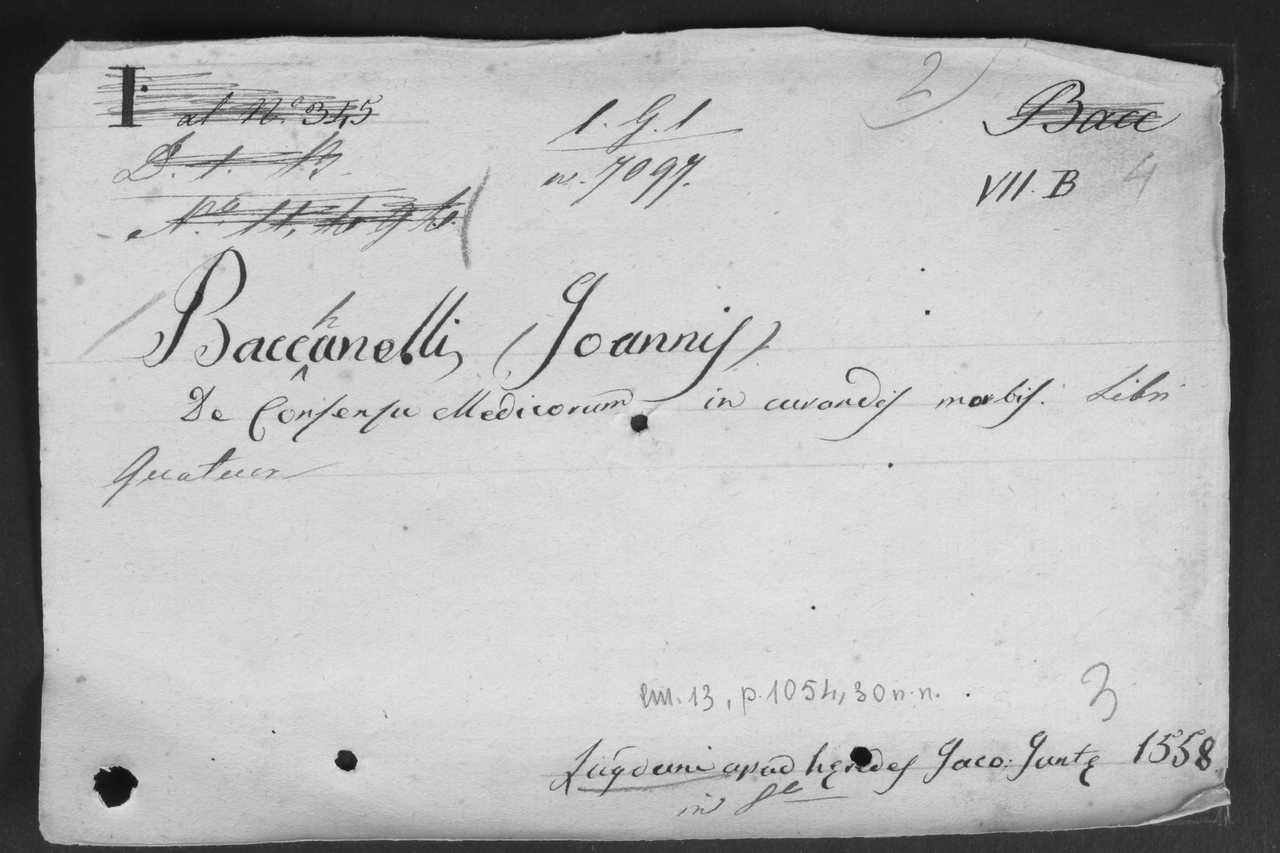 I. al N.º 345
1. G. 1
2
Bacc
D. 1. B.
n. 7097.
VII. B
4
N.º
Bacchanelli, (Joannis)
De Consensu Medicorum in curandis morbis. Libri
Quatuor
cm. 13, p. 1054, 30 n. n.
3
Lugduni apud hęredes Jaco: Juntę 1558
in 8º